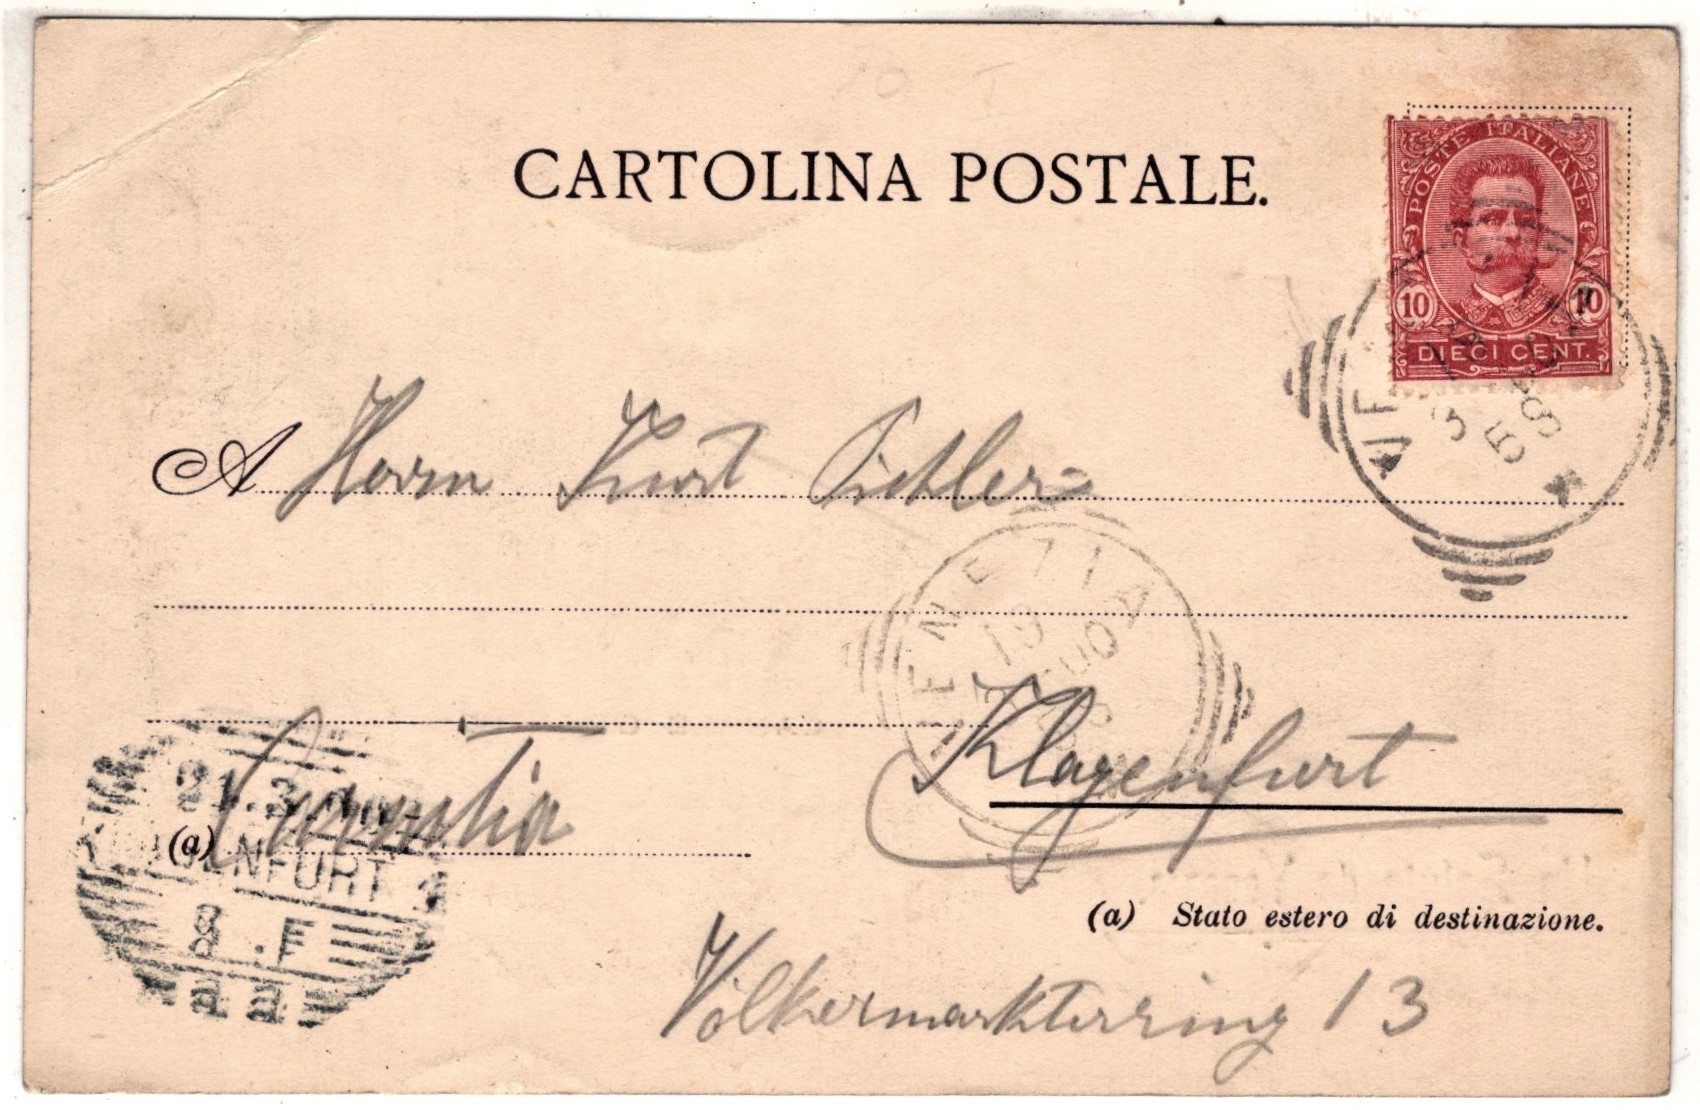 CARTOLINA POSTALE.
POSTE ITALIANE
10 10
DIECI CENT.
A Herrn Kurt Pichler
VENEZIA
19
Klagenfurt
21.3.
(a)
KLAGENFURT 1
8.F
a a
(a) Stato estero di destinazione.
Völkermarkterring 13